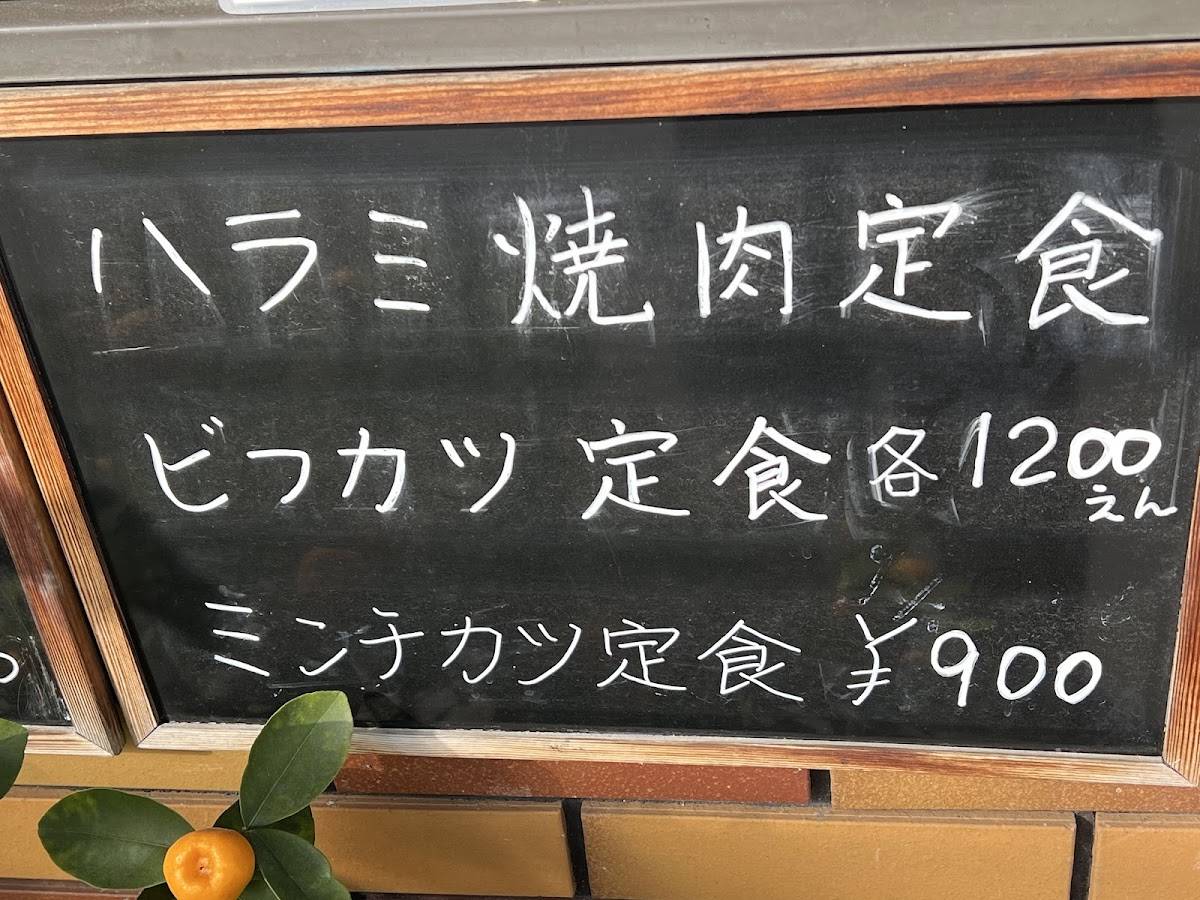 ハラミ焼肉定食
ビフカツ定食 各1200
えん
ミンチカツ定食 ¥900